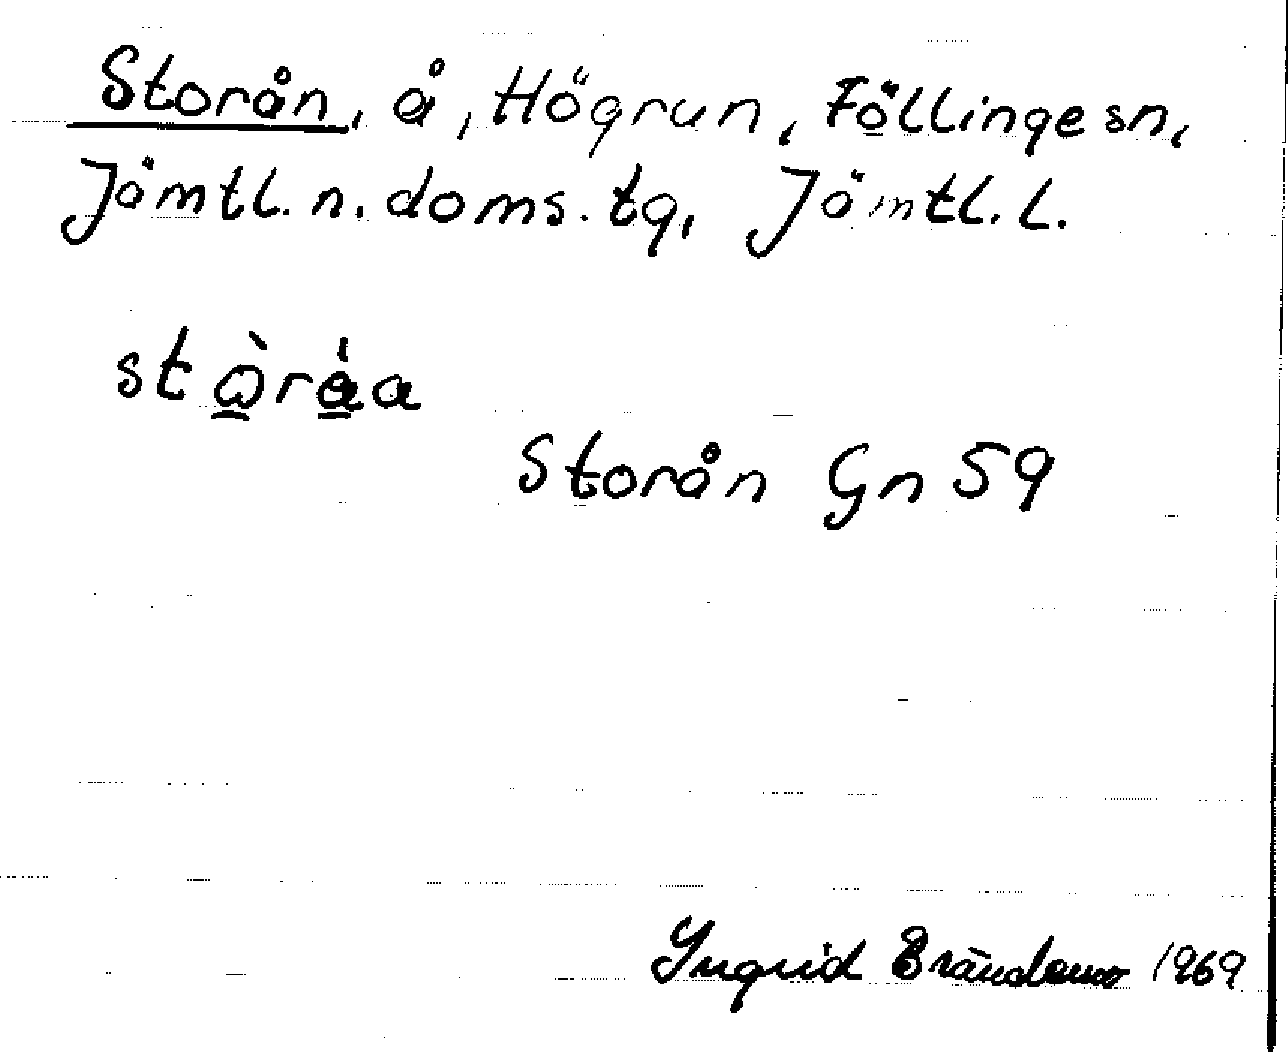 Storån, å, Högrun, Föllinge sn,
Jämtl. n. doms. tg, Jämtl. l.
stòråa
Storån Gn 59
Ingrid Brändemo 1969